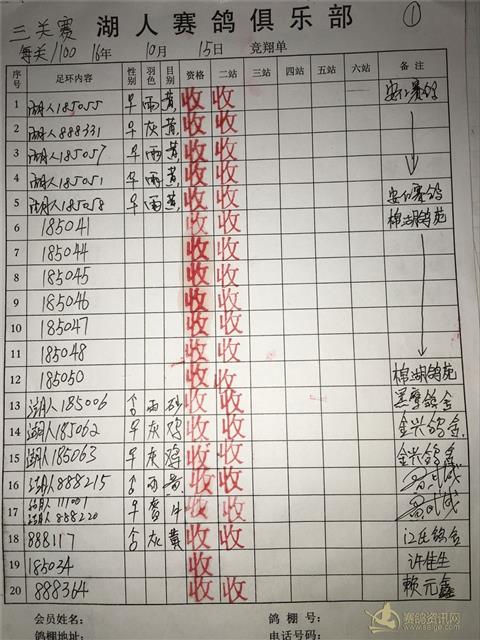 三关赛 湖人赛鸽俱乐部 ①
每关/100 16年 10月 15日 竞翔单
序号 足环内容 性别 羽色 目别 资格 二站 三站 四站 五站 六站 备注
1 湖人185055 早 雨 黄 收 收 安仁赛鸽
2 湖人888331 早 灰 黄 收 收
3 湖人185057 早 雨 黄 收 收
4 湖人185051 早 雨 黄 收 收
5 湖人185058 早 雨 黄 收 收 安仁赛鸽
6 185041 收 收 棉湖鸽苑
7 185044 收 收
8 185045 收 收
9 185046 收 收
10 185047 收 收
11 185048 收 收
12 185050 收 收 棉湖鸽苑
13 湖人185006 合 雨 砂 收 收 鸽舍
14 湖人185062 早 灰 鸡 收 收 金兴鸽舍
15 湖人185063 早 灰 鸡 收 收 金兴鸽舍
16 湖人888215 合 雨 黄 收 收
17 湖人111001 早 收 收
湖人888220
18 888117 合 灰 黄 收 收 江氏鸽舍
19 185034 收 收 许佳生
20 888364 收 收 赖元鑫
会员姓名: 鸽棚号:
鸽棚地址: 电话号码:
赛鸽资讯网
www.saige.com